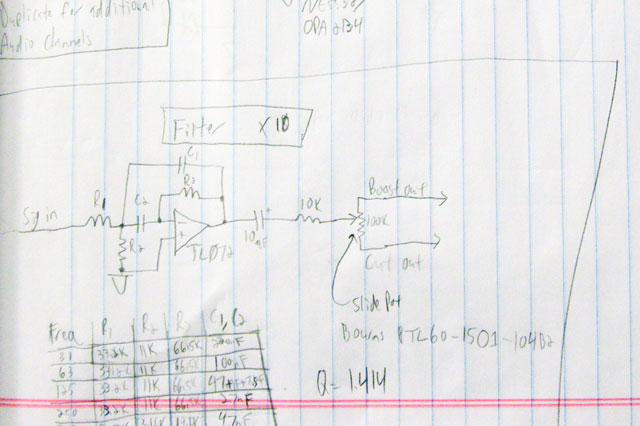 Duplicate for additional
Audio Channels
OPA2134
Filter x10
C1
R3
R1
C2
Sig in
R2
TL072
10uF
10K
Boost out
100K
Cut out
Slide Pot
Bourns PTL60-1501-104B2
Q = 1.414
Freq R1 R2 R3 C1, C2
31 33.2K 11K 66.5K 200nF
63 33.2K 11K 66.5K 100nF
125 33.2K 11K 66.5K
250 33.2K 11K 66.5K 27nF
47nF